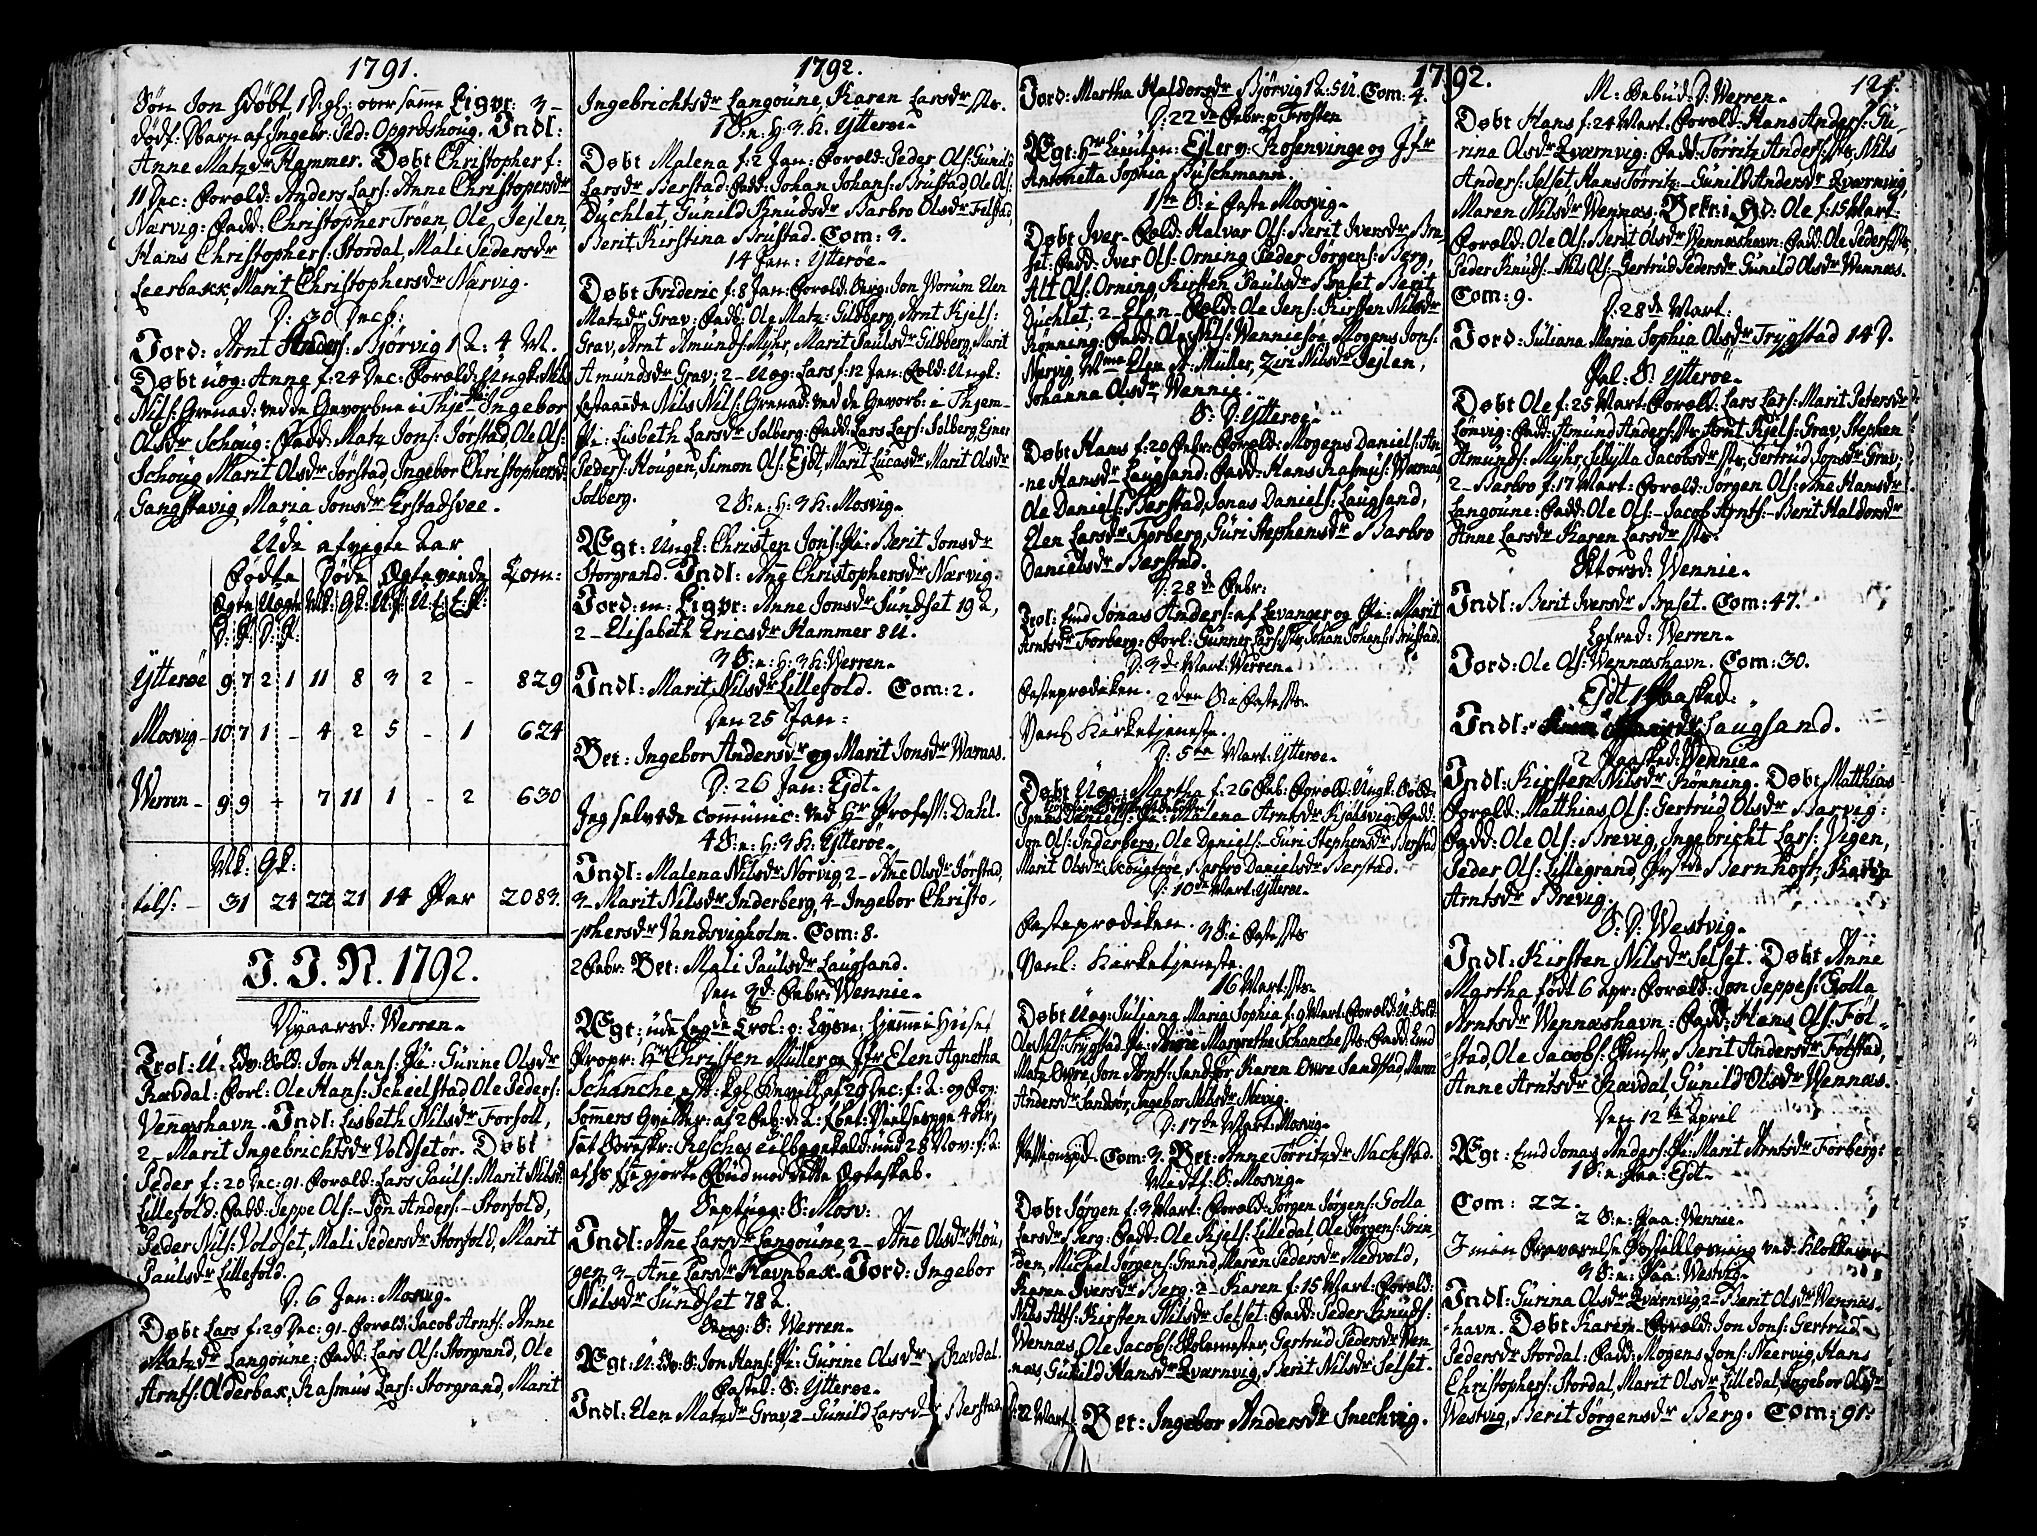 1791.
Søn Jon hdøbt 1 D: gl: over samme Ligpr: 3 –
dødf: Barn af Ingebr: Ped: Opgrdshoug. Indl:
Anne Matzdr Hammer. Døbt Christopher f:
11 Dec: Foræld: Anders Lars: Anne Christophersdr
Nærvig: Fadd: Christopher Trøen, Ole Jejlen,
Hans Christophers: Stordal, Mali Pedersdr
Leerbakk, Marit Christophersdr Nærvig.
D: 30 Decb:
Jord: Arnt Anders: Bjørvig 1 A: 4 M.
Døbt uæg: Anne f: 24 Dec: Foræld: Ungk: Nils
Nils: Grenad: ved de Gevorbne i Thje– Ingebor
Olsdr Schoug: Fadd: Matz Jons: Jørstad, Ole Ols:
Schoug Marit Olsdr Jørstad, Ingebor Christophersdr
Gangstavig, Maria Jonsdr Erstadsvee.
Udi afvigte Aar
Fødte Døde Egteviende Com:
Ægte Uægte Mk: Qk:
D: P: D: P:
Ytterøe 9 7 2 1 11 8 3 2 – 829
Mosvig – 10 7 1 – 4 2 5 – 1 624
Werren – 9 9 + 7 11 1 – 2 630
Mk: Qk:
tils: – 31 24 22 21 14 Par 2083.
I. J. N. 1792.
Nyaarsd: Werren –
Trol: U– Sold: Jon Hans: Pi: Gurine Olsdr
Ravdal: Forl: Ole Hans: Scheelstad Ole Peders:
Vennashavn. Indl: Lisbeth Nilsdr Forfoll,
2 – Marit Ingebrichtsdr Voldsetør. Døbt
Peder f: 20 Dec: 91 – Foræld: Lars Pauls: Marit Nilsdr
Lillefold: Fadd: Jeppe Ols – Jon Anders: – Storfold,
Peder Nils: Voldset, Mali Pedersdr Storfold, Marit
Paulsdr Lillefold.
D: 6 Jan: Mosvig –
Døbt Lars f: 29 Dec: 91 – Foræld: Jacob Arnts: Anne
Matzdr Langoune: Fadd: Lars Ols: Storgrand, Ole
Arnts: Olderbax, Rasmus Lars: Storgrand, Marit
1792.
Ingebrichtsdr Langoune, Karen Larsdr sts.
1 S: e: H: 3 K. Ytterøe –
Døbt Malena f: 2 Jan: Foræld: Peder Ols: Gunild
Larsdr Berstad: Fadd: Johan Johans: Brustad Ole Ols:
Duchlet, Gunild Knudsdr Barbro Olsdr Felstad,
Berit Kirstina Brustad. Com: 3.
14 Jan: Ytterøe –
Døbt Frideric f: 8 Jan: Foræld: Serg: Jon Worum Elen
Matzdr Grav: Fadd: Ole Matz: Gilberg, Arnt Kjels:
Grav, Arnt Amunds: Myhr, Marit Paulsdr Gilberg, Marit
Amundsdr Grav, 2 – Uæg: Lars f: 12 Jan: Forld: Ungk:
Nils Nils: Grenad: ved de Gevorb: i Thjem –
Pi: Lisbeth Larsdr Solberg: Fadd: Lars Lars: Solberg, Esper
Peders: Hougen, Simon Ols: Ejdt, Marit Lucasdr Marit Olsdr
Solberg.
2 S: e: H: 3 K: Mosvig –
Ægt: Ungk: Christen Jons: Pi: Berit Jonsdr
Storgrand. Indl: Anne Christophersdr Nærvig.
Jord: m: Ligpr: Anne Jonsdr Sundset 19 A,
2 – Elisabeth Ericsdr Hammer 8 U.
3 S: e: H: 3 K: Werren –
Indl: Marit Nilsdr Lillefold. Com: 2.
Den 25 Jan:
Bet: Ingebor Andersdr og Marit Jonsdr Warnæs.
D: 26 Jan: Ejdt –
Jeg selvtde communic: ved Hr Profess: Dahl.
4 S: e: H: 3 K: Ytterøe –
Indl: Malena Nilsdr Norvig, 2 – Anne Olsdr Jørstad,
3 – Marit Nilsdr Inderberg, 4 – Ingebor Christo-
phersdr Vandsvigholm. Com: 8.
2 Febr: Bet: Mali Paulsdr Laugsand.
Den 3d: Febr: Wennie –
Ægt: uden fegde Trol: o: Lysn: hjemme i Huset
Propr: Hr Christen Müller og Jfr Elen Agnetha
Schanche, efter Kgl: Bevill: af 29 Dec: f: A: og Fog:
Sommers Qvitter: af 2 Feb: d: A:
Septuag: S: Mosv:
Indl: Anne Larsdr Langoune, 2 – Anne Olsdr Hou-
gen, 3 – Anne Larsdr Havnbax. Jord: Ingebor
Nilsdr Sundset 78 A.
Sexag: S: Werren –
Ægt: U: S: Jon Hans: Pi: Gurine Olsdr Ravdal.
Fastel: S: Ytterøe –
Indl: Elen Matzdr Grav, 2 – Gunild Larsdr Berstad
1792.
Jord: Martha Haldorsdr Bjørvig 1 A: 5 U. Com: 4.
D: 22de Febr: p: Frosten
Ægt: Hr Lieuten: Ejler v: Rosenvinge og Jfr
Antonetta Sophia Buschmann.
1ste S: i Faste Mosvig –
Døbt Iver – Forld: Halvar Ols: Berit Iversdr Bra-
set: Fadd: Iver Ols: Orning Peder Jørgens: Berg,
Alt Ols: Orning, Kirsten Paulsdr Braset Berit
Duchlet, 2 – Elen – Forld: Ole Jens: Kirsten Nilsdr
Rønning: Fadd: Ole Nils: Wenniesøe, Mogens Jons:
Nervig, Mme Elen A: Müller, Ziri Nilsdr Jejlen,
Johanna Olsdr Wennie.
S: D: Ytterøe –
Døbt Hans f: 20 Febr: Foræld: Mogens Daniels: An-
ne Hansdr Laugsand: Fadd: Hans Rasmus: Warnæs,
Ole Daniels: Berstad, Jonas Daniels: Laugsand,
Elen Larsdr Forberg, Guri Stephensdr Barbro
Danielsdr Berstad.
D: 28de Febr:
Trol: Emd Jonas Anders: af Levanger og Pi: Marit
Arntsdr Forberg: Forl: Gunner Lars: sts, Johan Johans: Brustad.
D: 3de Mart: Werren –
Fasteprædiken.
2den S: i Faste sts –
Venl: Kirketjeneste.
D: 5te Mart: Ytterøe –
Døbt Uæg: Martha f: 26 Feb: Foræld: Ungk: Sold:
Jonas Daniels: Pi: Malena Arntsdr Kjølsvig: Fadd:
Jon Ols: Inderberg, Ole Daniels: – Guri Stephensdr Berstad
Marit Olsdr Skougtrøe, Barbro Danielsdr Berstad.
D: 10de Mart: Ytterøe –
Fasteprædiken.
3 S: i Faste sts
Venl: Kirketjeneste.
16 Mart: sts –
Døbt Uæg: Juliana Maria Sophia f: 9 Mart: Foræld: U: Sold:
Ole Nils: Trygstad Pi: Margrethe Schanche sts: Fadd: Emd
Matz Owre, Jon Arnts: Sandsør, Karen Owre Sandstad, Maren
Andersdr Sandsør, Ingebor Nilsdr Nervig.
D: 17de Mart: Mosvig –
Com: 3. Bet: Anne Torritzdr Nachstad.
Midtf: S: Mosvig –
Døbt Jørgen f: 3 Mart: Foræld: Jørgen Jørgens: Golla
Larsdr Berg: Fadd: Ole Kjels: Lilledal, Ole Jørgens: Gren-
den, Michel Jørgens: Grand, Maren Pedersdr Medvold,
Karen Iversdr Berg. 2 – Karen f: 15 Mart: Foræld:
Nils Alfs: Kirsten Nilsdr Selset: Fadd: Peder Knuds:
Wennæs, Ole Jacobs: Skolemester, Gertrud Pedersdr Wen-
næs, Gunild Hansdr Qværnvig, Berit Nilsdr Selset.
D: 22 Mart: Bet: Ingebor Andersdr Snechvig.
121.
M: Bebud: D: Werren –
Døbt Hans f: 24 Mart: Foræld: Hans Anders: Gu-
rina Olsdr Qværnvig: Fadd: Torritz Anders: sts, Nils
Anders: Selset, Hans Tørritz: – Gunild Andersdr Qværnvig,
Maren Nilsdr Wennæs. Bekr: i H: D: Ole f: 15 Mart:
Foræld: Ole Ols: Berit Olsdr Wennæshavn: Fadd: Ole Peders: sts,
Peder Knuds – Nils Ols: Gertrud Pedersdr Gunild Olsdr Wennæs.
Com: 9.
D: 28de Mart:
Jord: Juliana Maria Sophia Olsdr Trygstad 14 D.
Pal: S: Ytterøe –
Døbt Ole f: 25 Mart: Foræld: Lars Lars: Marit Petersdr
Lonvig: Fadd: Amund Anders: sts, Arnt Kjels: Grav, Stephen
Amunds: Myhr, Sibylla Jacobsdr sts, Gertrud Jonsdr Grav;
2 – Barbro f: 17 Mart: Foræld: Jørgen Ols: Ane Hansdr
Langoune: Fadd: Ole Ols: – Jacob Arnts: – Berit Haldorsdr
Anne Larsdr Karen Larsdr sts.
Skiersd: Wennie –
Indl: Berit Iversdr Braset. Com: 47.
Lgfred: Werren –
Jord: Ole Ols: Wennæshavn. Com: 30.
Ejdt 1 Paasked:
Indl: Laugsand.
2 Paasked: Wennie –
Indl: Kirsten Nilsdr Rønning. Døbt Matthias
Foræld: Matthias Ols: Gertrud Olsdr Barvig:
Fadd: Ole Ols: Brevig, Ingebricht Lars: Vigen,
Peder Ols: Lillegrand, Bernhoft, Karen
Arntsdr Brevig.
S: D: Westvig –
Indl: Kirsten Nilsdr Selset. Døbt Anne
Martha født 6 apr: Foræld: Jon Jeppes: Golla
Arntsdr Wennæshavn: Fadd: Hans Ols: Føl-
stad, Ole Jacobs: Smstr, Berit Andersdr Følstad,
Anne Arntsdr Ravdal, Gunild Olsdr Wennæs.
Den 12te April
Ægt: Emd Jonas Anders: Pi: Marit Arntsdr Forberg:
1 S: e: Paa: Ejdt –
Com: 22.
2 S: e: Paa: Wennie –
I min Fraværelse Postillæsning ved Klokkeren
3 S: e: Paa: Westvig –
Indl: Gurina Olsdr Qværnvig, 2 – Berit Olsdr Wennæs-
havn. Døbt Karen – Foræld: Jon Jons: Gertrud
Pedersdr Stordal: Fadd: Mogens Jons: Neervig, Hans
Christophers: Stordal, Marit Olsdr Lilledal, Ingebor Olsdr
Westvig, Berit Jørgensdr Berg. Com: 91.